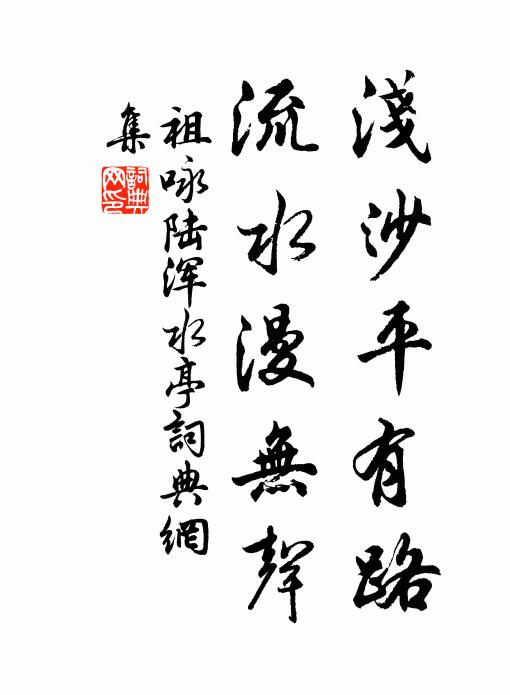 淺沙平有路
流水漫無聲
祖咏陆渾水亭詞典網
集
詞典网印